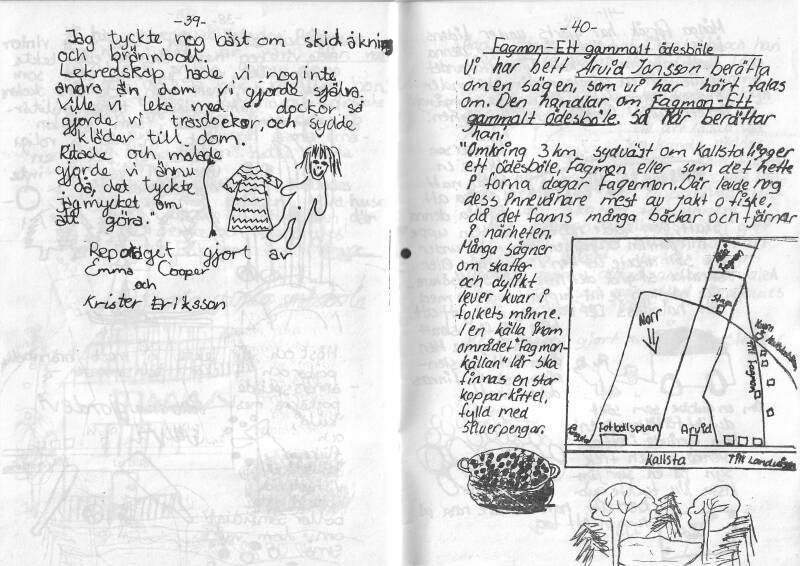 -39-
Jag tyckte nog bäst om skidåkning
och brännboll.
Lekredskap hade vi nog inte
andra än dom vi gjorde själva.
Ville vi leka med dockor så
gjorde vi trasdockor, och sydde
kläder till dom.
Ritade och målade
gjorde vi ännu
då, det tyckte
jag mycket om
att göra."
Reportaget gjort av
Emma Cooper
och
Krister Eriksson
-40-
Fagmon-Ett gammalt ödesböle
Vi har bett Arvid Jonsson berätta
om en sägen, som vi har hört talas
om. Den handlar om Fagmon-Ett
gammalt ödesböle. Så här berättar
han:
"Omkring 3 km sydväst om Kallsta ligger
ett ödesböle, Fagmon eller som det hette
i forna dagar Fagermon. Där levde nog
dess innevånare mest av jakt o fiske,
då det fanns många bäckar och tjärnar
i närheten.
Många sägner
om skatter
och dylikt
lever kvar i
folkets minne.
I en källa inom
området "Fagmon-
källan" lär ska
finnas en stor
kopparkittel,
fylld med
silverpengar.
Norr
Till Fagmon
Fotbollsplan
Arvid
Kallsta
Till Landsvägen